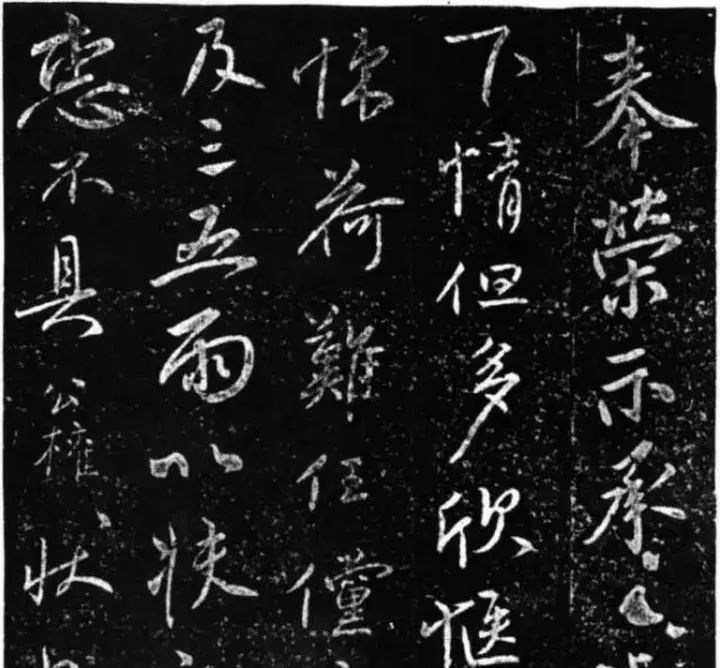 奉榮示承
下情但多欣愜
悚荷難任儻
及三五兩以扶
惠不具公權狀